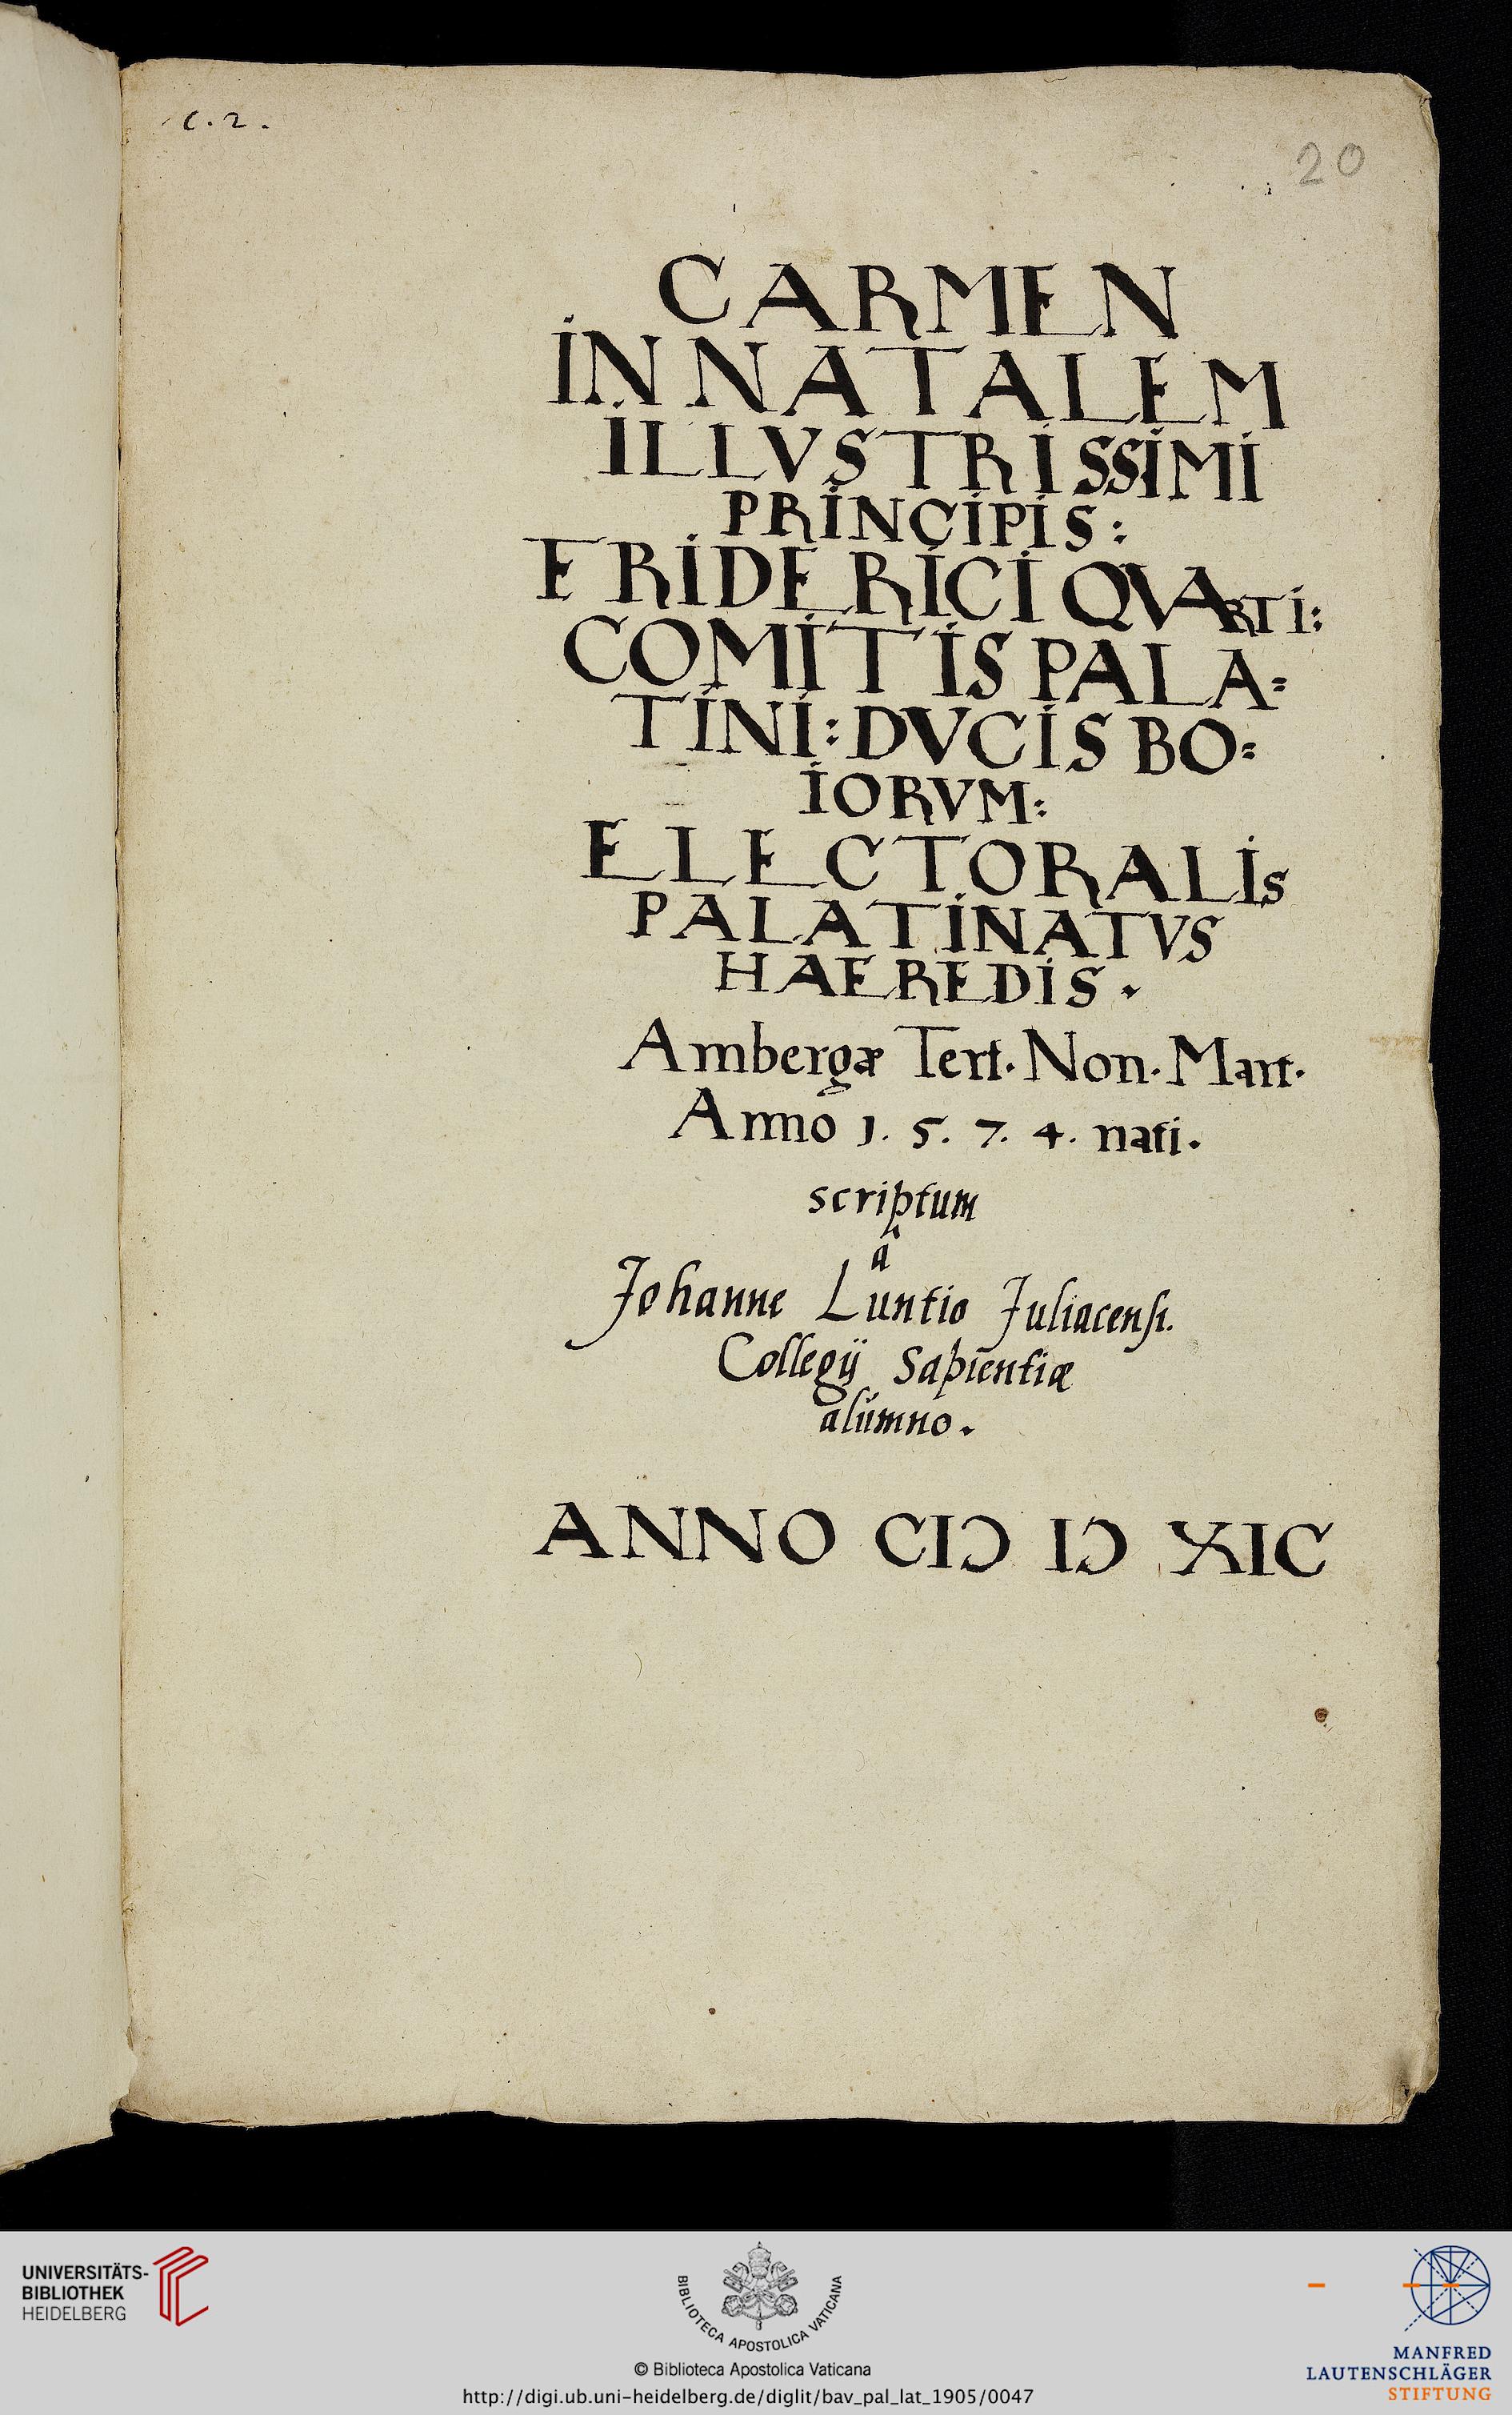 c. 2.
20
CARMEN
IN NATALEM
ILLVSTRISSIMI
PRINCIPIS:
FRIDERICI QVARTI:
COMITIS PALA=
TINI: DVCIS BO=
IORVM:
ELECTORALIS
PALATINATVS
HAEREDIS.
Ambergæ Tert. Non. Mart.
Anno 1. 5. 7. 4. nati.
scriptum
â
Johanne Luntio Juliacensi.
Collegij Sapientiæ
alumno.
ANNO CIↃ IↃ XIC
UNIVERSITÄTS-
BIBLIOTHEK
HEIDELBERG
BIBLIOTECA APOSTOLICA VATICANA
© Biblioteca Apostolica Vaticana
http://digi.ub.uni-heidelberg.de/diglit/bav_pal_lat_1905/0047
MANFRED
LAUTENSCHLÄGER
STIFTUNG